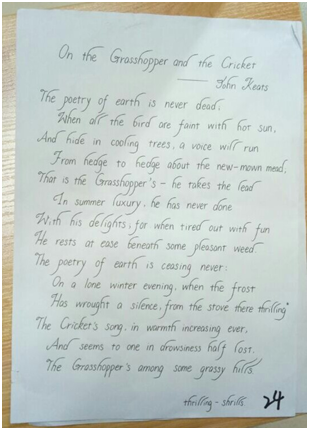 On the Grasshopper and the Cricket
—— John Keats
The poetry of earth is never dead:
When all the bird are faint with hot sun,
And hide in cooling trees, a voice will run
From hedge to hedge about the new-mown mead,
That is the Grasshopper's - he takes the lead
In summer luxury, he has never done
With his delights, for when tired out with fun
He rests at ease beneath some pleasant weed.
The poetry of earth is ceasing never:
On a lone winter evening, when the frost
Has wrought a silence, from the stove there thrilling*
The Cricket's song, in warmth increasing ever,
And seems to one in drowsiness half lost,
The Grasshopper's among some grassy hills.
thrilling - shrills
24